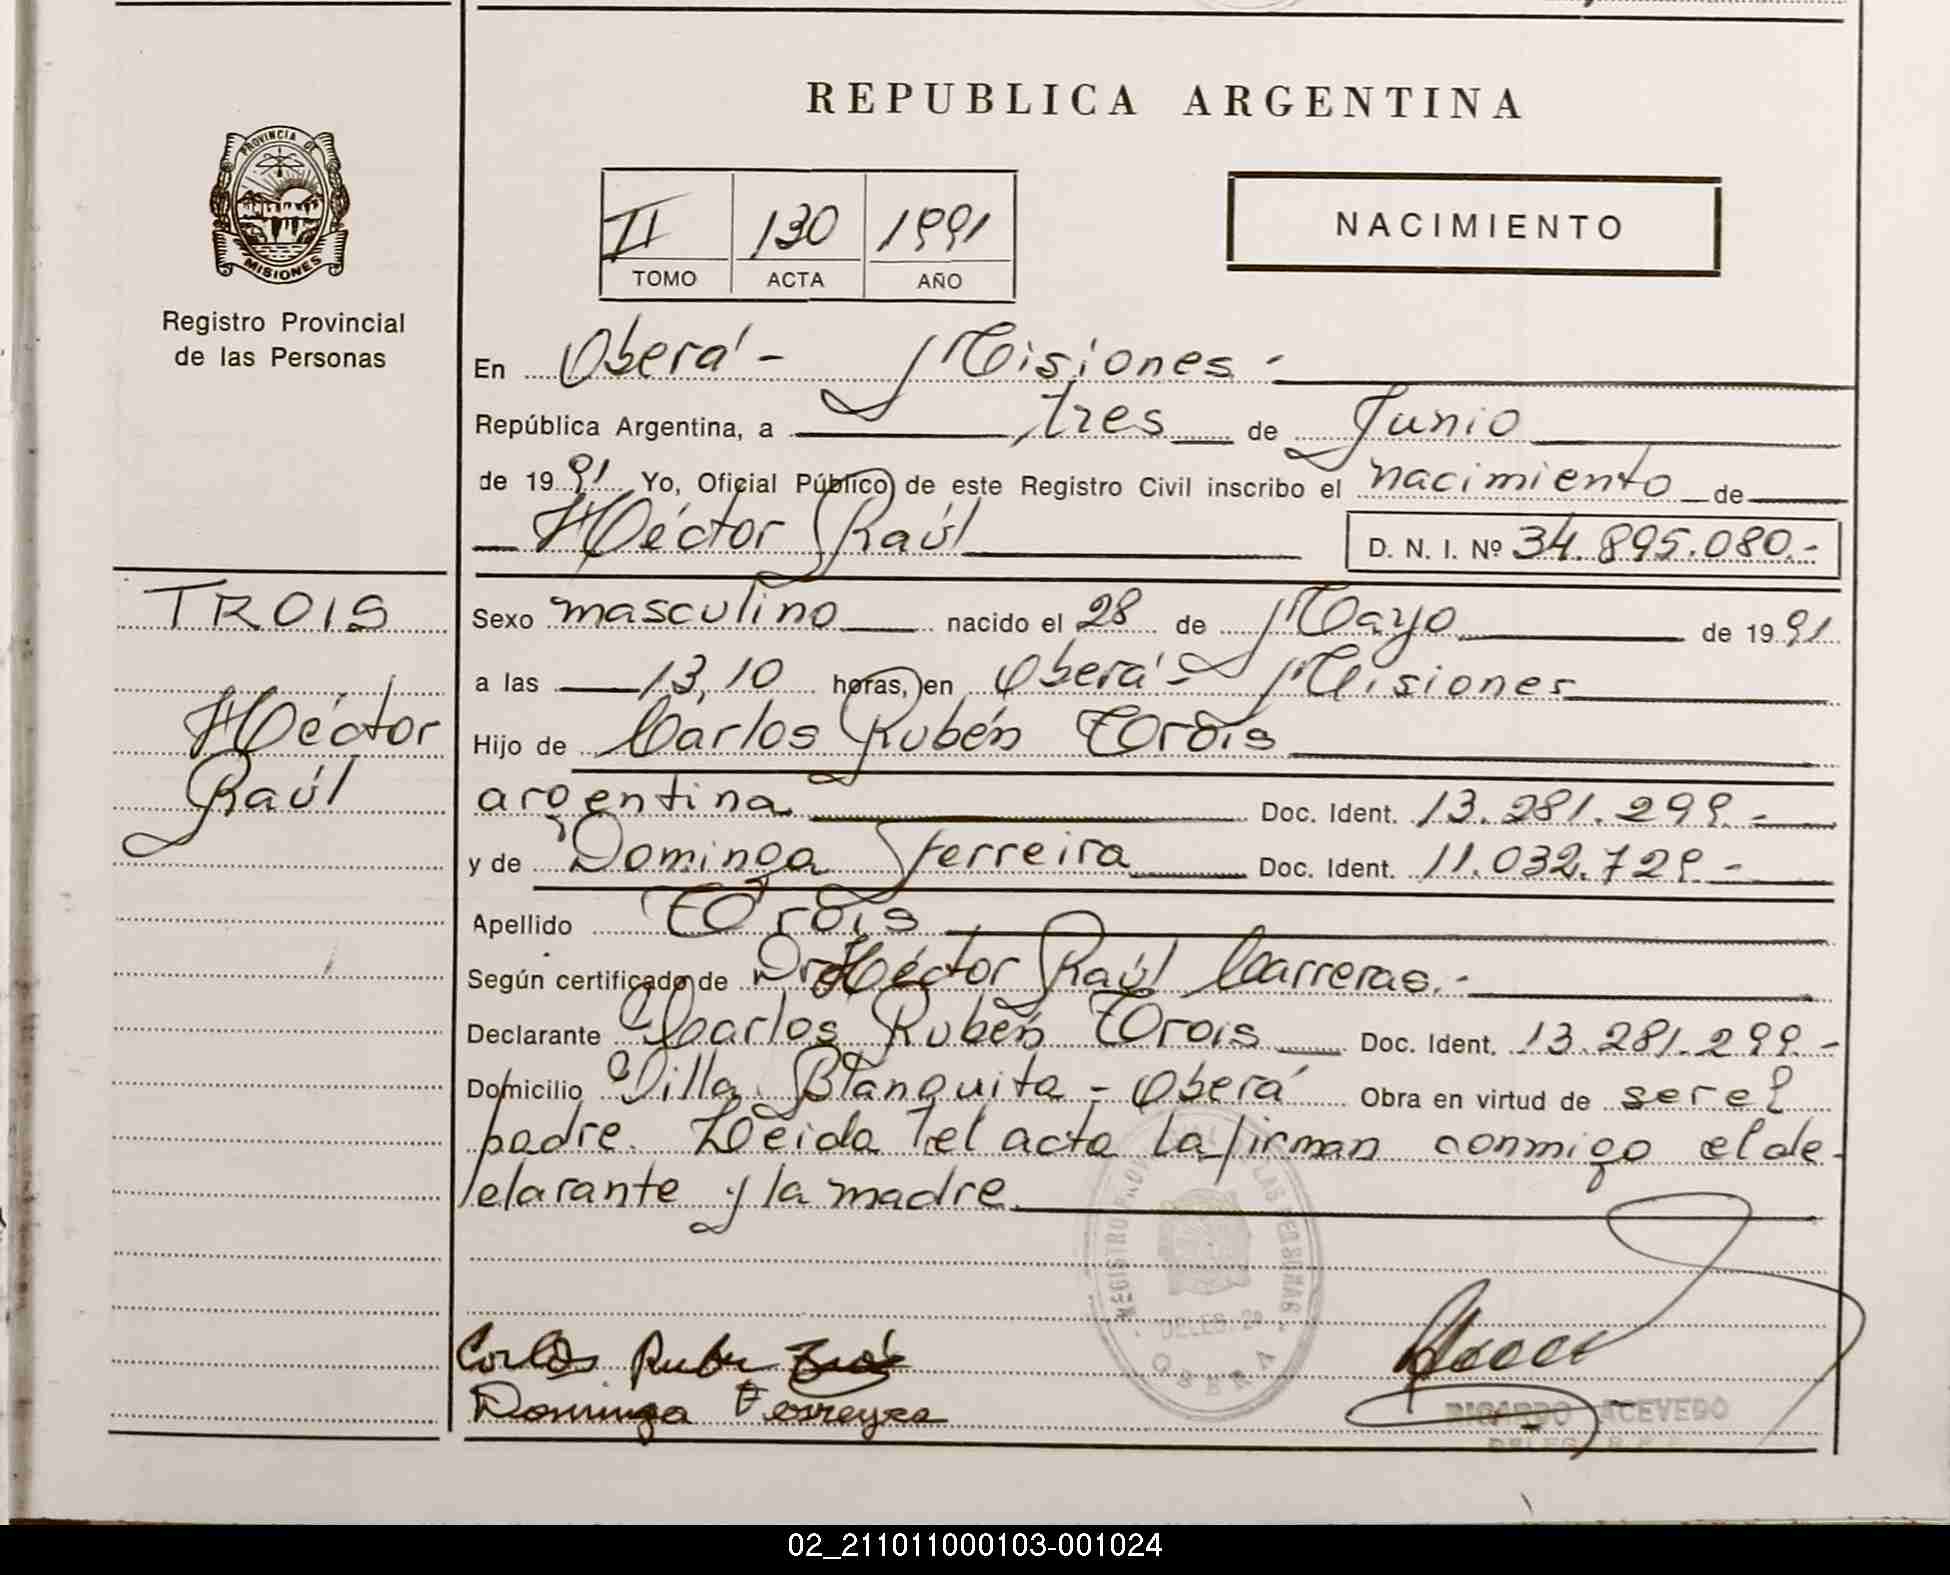 REPUBLICA ARGENTINA
PROVINCIA DE
MISIONES
Registro Provincial
de las Personas
II 130 1991
TOMO ACTA AÑO
NACIMIENTO
En Oberá - Misiones -
República Argentina, a tres de Junio
de 1991 Yo, Oficial Público de este Registro Civil inscribo el nacimiento de
Héctor Raúl D. N. I. Nº 34.895.080.-
TROIS
Héctor
Raúl
Sexo masculino nacido el 28 de Mayo de 1991
a las 13,10 horas, en Oberá - Misiones
Hijo de Carlos Rubén Trois
argentina Doc. Ident. 13.281.299.-
y de Dominga Ferreira Doc. Ident. 11.032.729-
Apellido Trois
Según certificado de Dr Héctor Raúl Carreras.-
Declarante Carlos Rubén Trois Doc. Ident. 13.281.299.-
Domicilio Villa Blanquita - Oberá Obra en virtud de ser el
padre. Leida el acta la firman conmigo el de
clarante y la madre
REGISTRO PROVINCIAL DE LAS PERSONAS
OBERA
Carlos Rubn
Dominga Ferreyra
RICARDO ACEVEDO
02_211011000103-001024